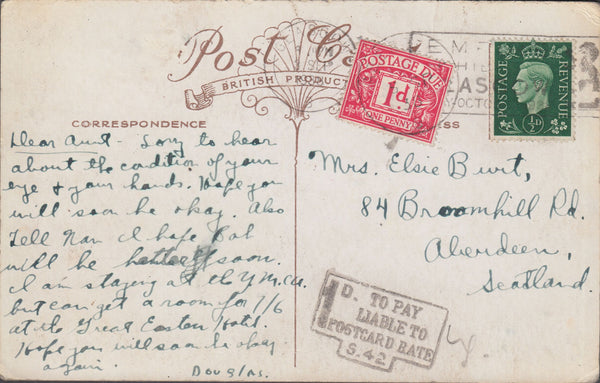 Post Ca
BRITISH PRODUC
CORRESPONDENCE
ESS
EMP
POSTAGE DUE
1d.
ONE PENNY
POSTAGE
REVENUE
½D
Dear Aunt - Sorry to hear
about the condition of your
eye & your hands. Hope you
will soon be okay. Also
Tell Nan I hope Bob
will be better soon.
I am staying at the Y.M.C.A.
but can get a room for 7/6
at the Great Eastern Hotel.
Hope you will soon be okay
again.
Douglas.
Mrs. Elsie Burt,
84 Broomhill Rd.
Aberdeen,
Scotland.
1D. TO PAY
LIABLE TO
POSTCARD RATE
S.42